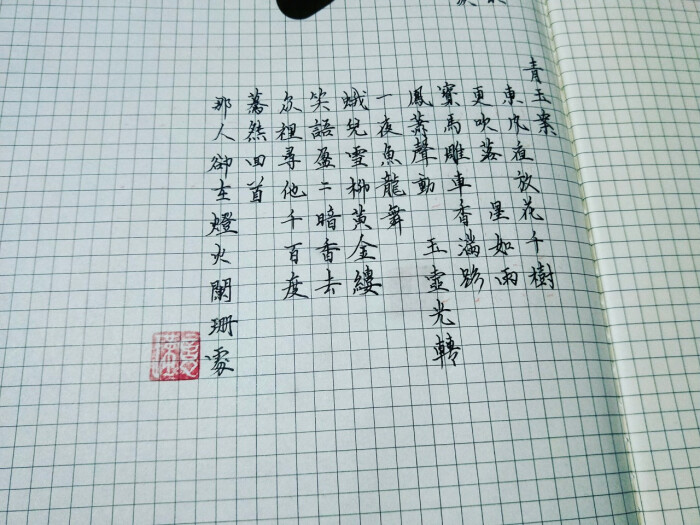 青玉案
東风夜放花千樹
更吹落 星如雨
寳馬雕車香滿路
鳳蕭聲動 玉壺光轉
一夜魚龍舞
蛾兒雪柳黃金縷
笑語盈二暗香去
众裡尋他千百度
驀然回首
那人卻在燈火闌珊處